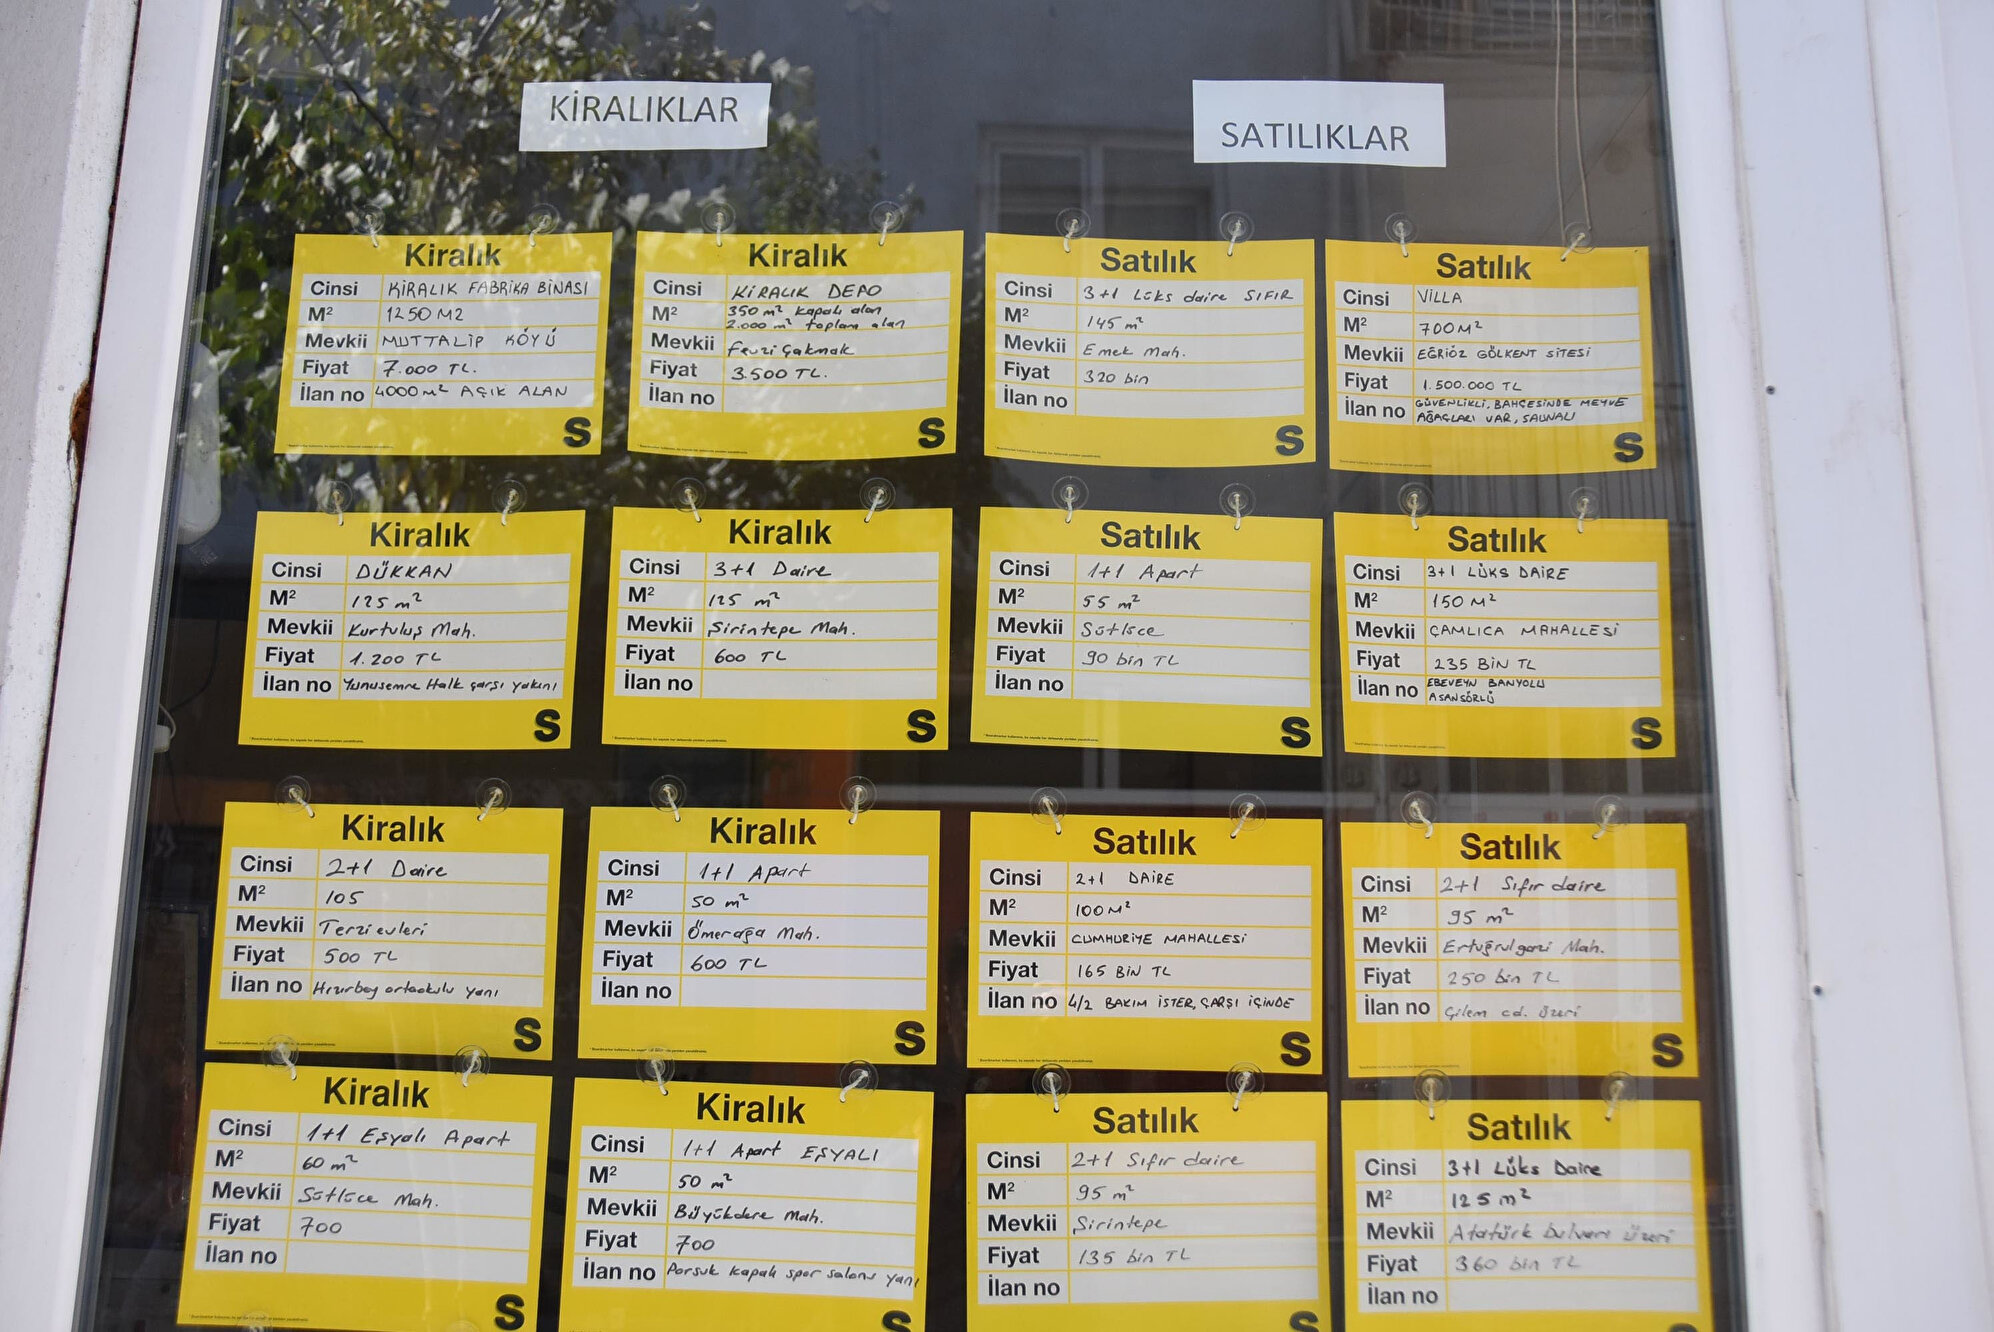 KİRALIKLAR
SATILIKLAR
Kiralık
Cinsi KİRALIK FABRİKA BİNASI
M² 1250 M2
Mevkii MUTTALIP KÖYÜ
Fiyat 7.000 TL.
İlan no 4000 M² AÇIK ALAN
S
Kiralık
Cinsi KİRALIK DEPO
M² 350 m² kapalı alan
2.000 m² toplam alan
Mevkii Fevzi Çakmak
Fiyat 3.500 TL.
İlan no
S
Satılık
Cinsi 3+1 Lüks daire SIFIR
M² 145 m²
Mevkii Emek Mah.
Fiyat 320 bin
İlan no
S
Satılık
Cinsi VİLLA
M² 700 M²
Mevkii EĞRİÖZ GÖLKENT SİTESİ
Fiyat 1.500.000 TL
İlan no GÜVENLİKLİ, BAHÇESİNDE MEYVE
AĞAÇLARI VAR, SAUNALI
S
Kiralık
Cinsi DÜKKAN
M² 125 m²
Mevkii Kurtuluş Mah.
Fiyat 1.200 TL
İlan no Yunusemre Halk çarşı yakını
S
Kiralık
Cinsi 3+1 Daire
M² 125 m²
Mevkii Şirintepe Mah.
Fiyat 600 TL
İlan no
S
Satılık
Cinsi 1+1 Apart
M² 55 m²
Mevkii Sütlüce
Fiyat 90 bin TL
İlan no
S
Satılık
Cinsi 3+1 LÜKS DAİRE
M² 150 M²
Mevkii ÇAMLICA MAHALLESİ
Fiyat 235 BİN TL
İlan no EBEVEYN BANYOLU
ASANSÖRLÜ
S
Kiralık
Cinsi 2+1 Daire
M² 105
Mevkii Terzievleri
Fiyat 500 TL
İlan no Hızırbey ortaokulu yanı
S
Kiralık
Cinsi 1+1 Apart
M² 50 m²
Mevkii Ömerağa Mah.
Fiyat 600 TL
İlan no
S
Satılık
Cinsi 2+1 DAİRE
M² 100 M²
Mevkii CUMHURİYE MAHALLESİ
Fiyat 165 BİN TL
İlan no 4/2 BAKIM İSTER, ÇARŞI İÇİNDE
S
Satılık
Cinsi 2+1 Sıfır daire
M² 95 m²
Mevkii Ertuğrulgazi Mah.
Fiyat 250 bin TL
İlan no Çilem cd. üzeri
S
Kiralık
Cinsi 1+1 Eşyalı Apart
M² 60 m²
Mevkii Sütlüce Mah.
Fiyat 700
İlan no
S
Kiralık
Cinsi 1+1 Apart EŞYALI
M² 50 m²
Mevkii Büyükdere Mah.
Fiyat 700
İlan no Porsuk kapalı spor salonu yanı
S
Satılık
Cinsi 2+1 Sıfır daire
M² 95 m²
Mevkii Şirintepe
Fiyat 135 bin TL
İlan no
S
Satılık
Cinsi 3+1 Lüks Daire
M² 125 m²
Mevkii Atatürk bulvarı üzeri
Fiyat 360 bin TL
İlan no
S